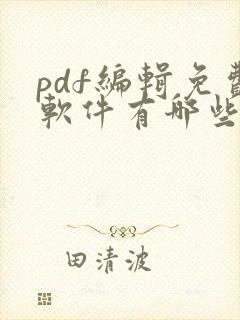 pdf編輯免費
軟件有哪些
田清波